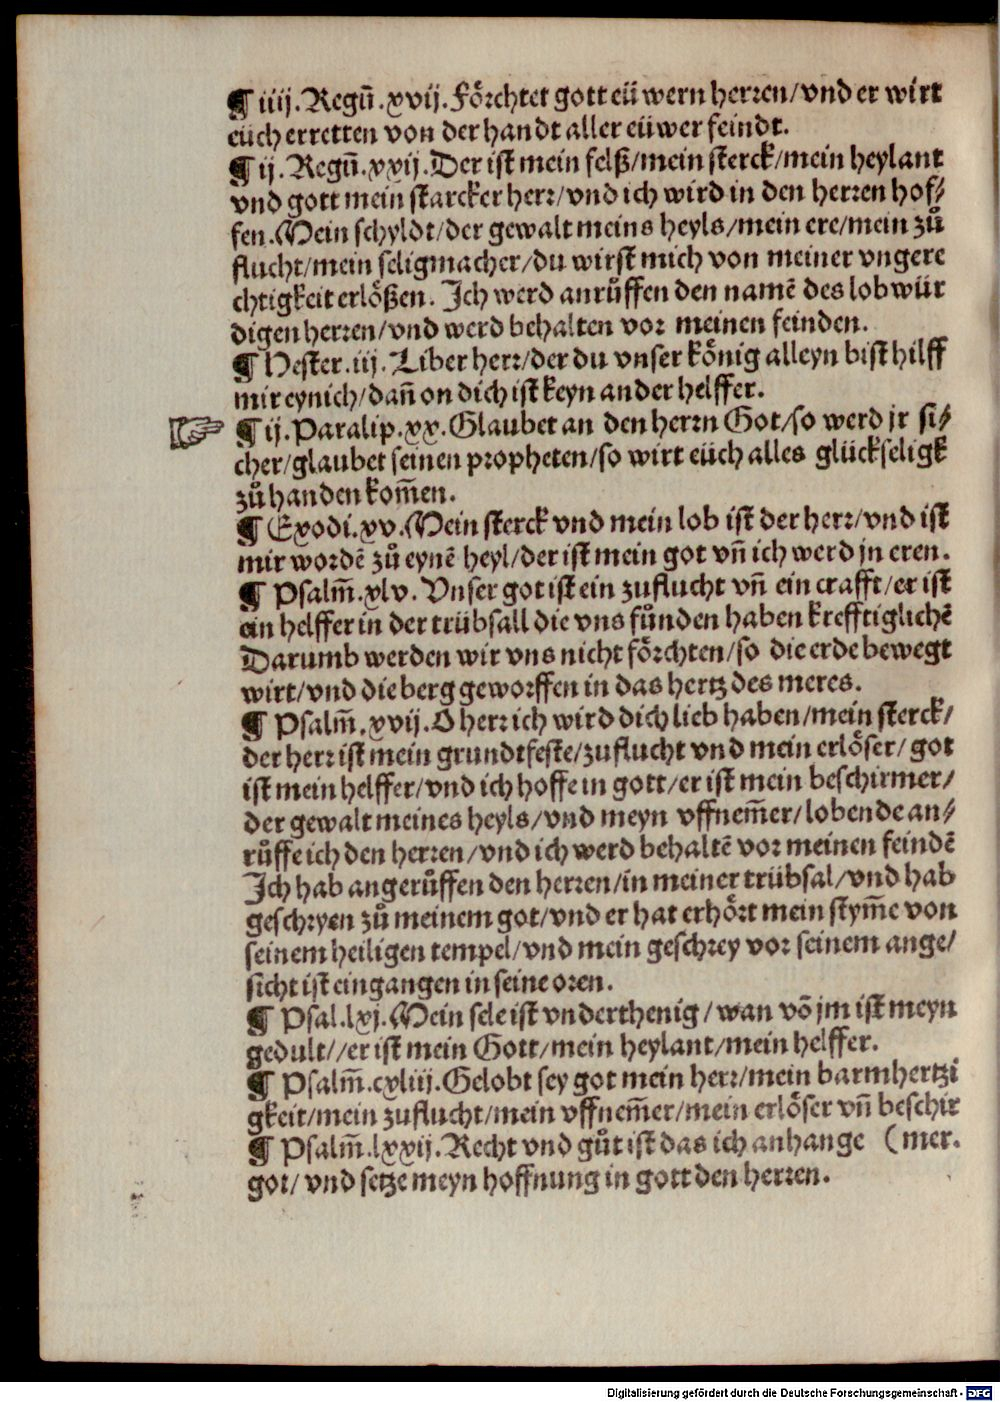 ¶ iiij. Regū̃. xvij. Fo᷑rchtet gott eüwern herren/vnd er wirt
eüch erretten von der handt aller eüwer feindt.
¶ ij. Regū̃. xxij. Der ist mein felß/mein sterck/mein heylant
vnd gott mein starcker herr/vnd ich wird in den herren hof⸗
fen. Mein schyldt/der gewalt meins heyls/mein ere/mein zuͦ
flucht/mein seligmacher/du wirst mich von meiner vngere
chtigkeit erloͤßen. Ich werd anruͤffen den namē des lobwür
digen herren/vnd werd behalten vor meinen feinden.
¶ Hester. iij. Liber herr/der du vnser koͤnig alleyn bist hilff
mir eynich/dañ on dich ist keyn ander helffer.
☞ ¶ ij. Paralip. xx. Glaubet an den herrn Got/so werd jr si⸗
cher/glaubet seinen propheten/so wirt eüch alles glückseligk
zuͦ handen kom̃en.
¶ Exodi. xv. Mein sterck vnd mein lob ist der herr/vnd ist
mir wordē zuͦ eynē heyl/der ist mein got vñ ich werd jn eren.
¶ Psalm̃. xlv. Vnser got ist ein zuflucht vñ ein crafft/er ist
ein helffer in der trübsall die vns fuͦnden haben krefftiglichē
Darumb werden wir vns nicht foͤrchten/so die erde bewegt
wirt/vnd die berg geworffen in das hertz des meres.
¶ Psalm̃. xvij. O herr ich wird dich lieb haben/mein sterck/
der herr ist mein grundtfeste/zuflucht vnd mein erloͤser/ got
ist mein helffer/vnd ich hoffe in gott/er ist mein beschirmer/
der gewalt meines heyls/vnd meyn vffnem̃er/lobende an⸗
ruͤffe ich den herren/vnd ich werd behaltē vor meinen feindē
Ich hab angeruͤffen den herren/in meiner trübsal/vnd hab
geschryen zuͦ meinem got/vnd er hat erhoͤrt mein stym̃e von
seinem heiligen tempel/vnd mein geschrey vor seinem ange/
sicht ist eingangen in seine oren.
¶ Psal. lxj. Mein sele ist vnderthenig/wan võ jm ist meyn
gedult//er ist mein Gott/mein heylant/mein helffer.
¶ Psalm̃. cxliij. Gelobt sey got mein herr/mein barmhertzi
gkeit/mein zuflucht/mein vffnem̃er/mein erloͤser vñ beschir
¶ Psalm̃. lxxij. Recht vnd guͦt ist das ich anhange (mer.
got/ vnd setze meyn hoffnung in gott den herren.
Digitalisierung gefördert durch die Deutsche Forschungsgemeinschaft · DFG